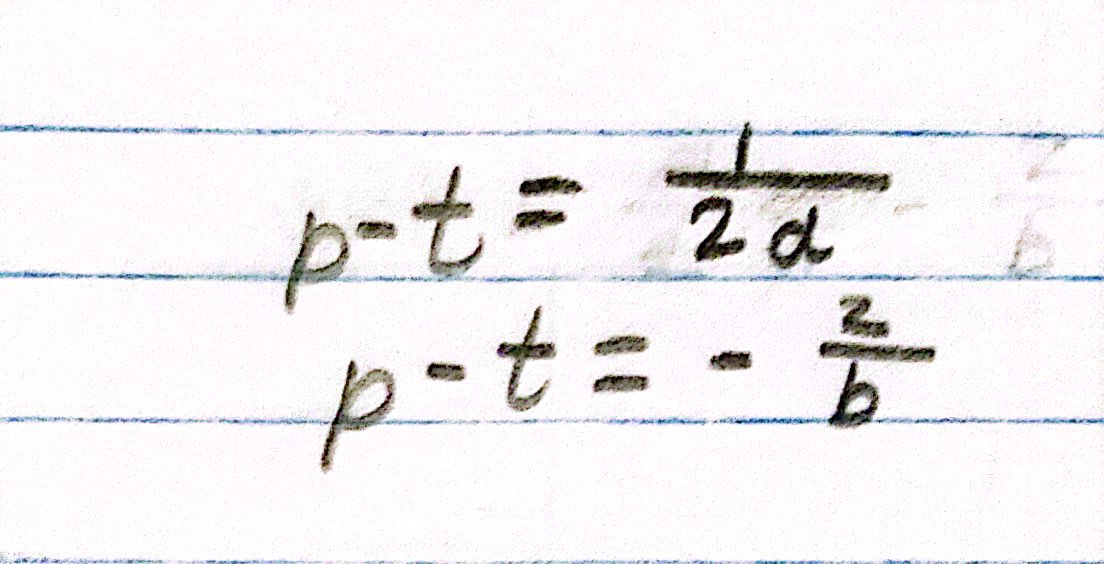 p - t = 1/2d
p - t = - 2/b